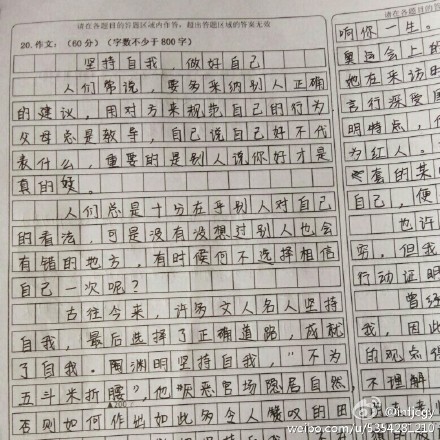 请在各题目的答题区域内作答，超出答题区域的答案无效
20.作文：（60分）（字数不少于800字）
坚持自我，做好自己
人们常说，要多采纳别人正确
的建议，用对方来规范自己的行为
父母总是教导，自己说自己好不代
表什么，重要的是别人说你好才是
真的好。
人们总是十分在乎别人对自己
的看法，可是没有没想过别人也会
有错的地方，有时候何不选择相信
自己一次呢？
古往今来，许多文人名人坚持
自我，最后选择了正确道路，成就
了自我。陶渊明坚持自我，"不为
五斗米折腰"，他厌恶官场隐居自然，
否则如何作出如此多令人赞叹的田
请在各题目的答
响你一生。
奥运会上的
她在来访时
言行深受广
明特点，
为红人。
套的某
自己，便
也许
穷，但我
行动证明
曾经
我，因此
的观点
不理解
@infjcgy
weibo.com/u/535428210